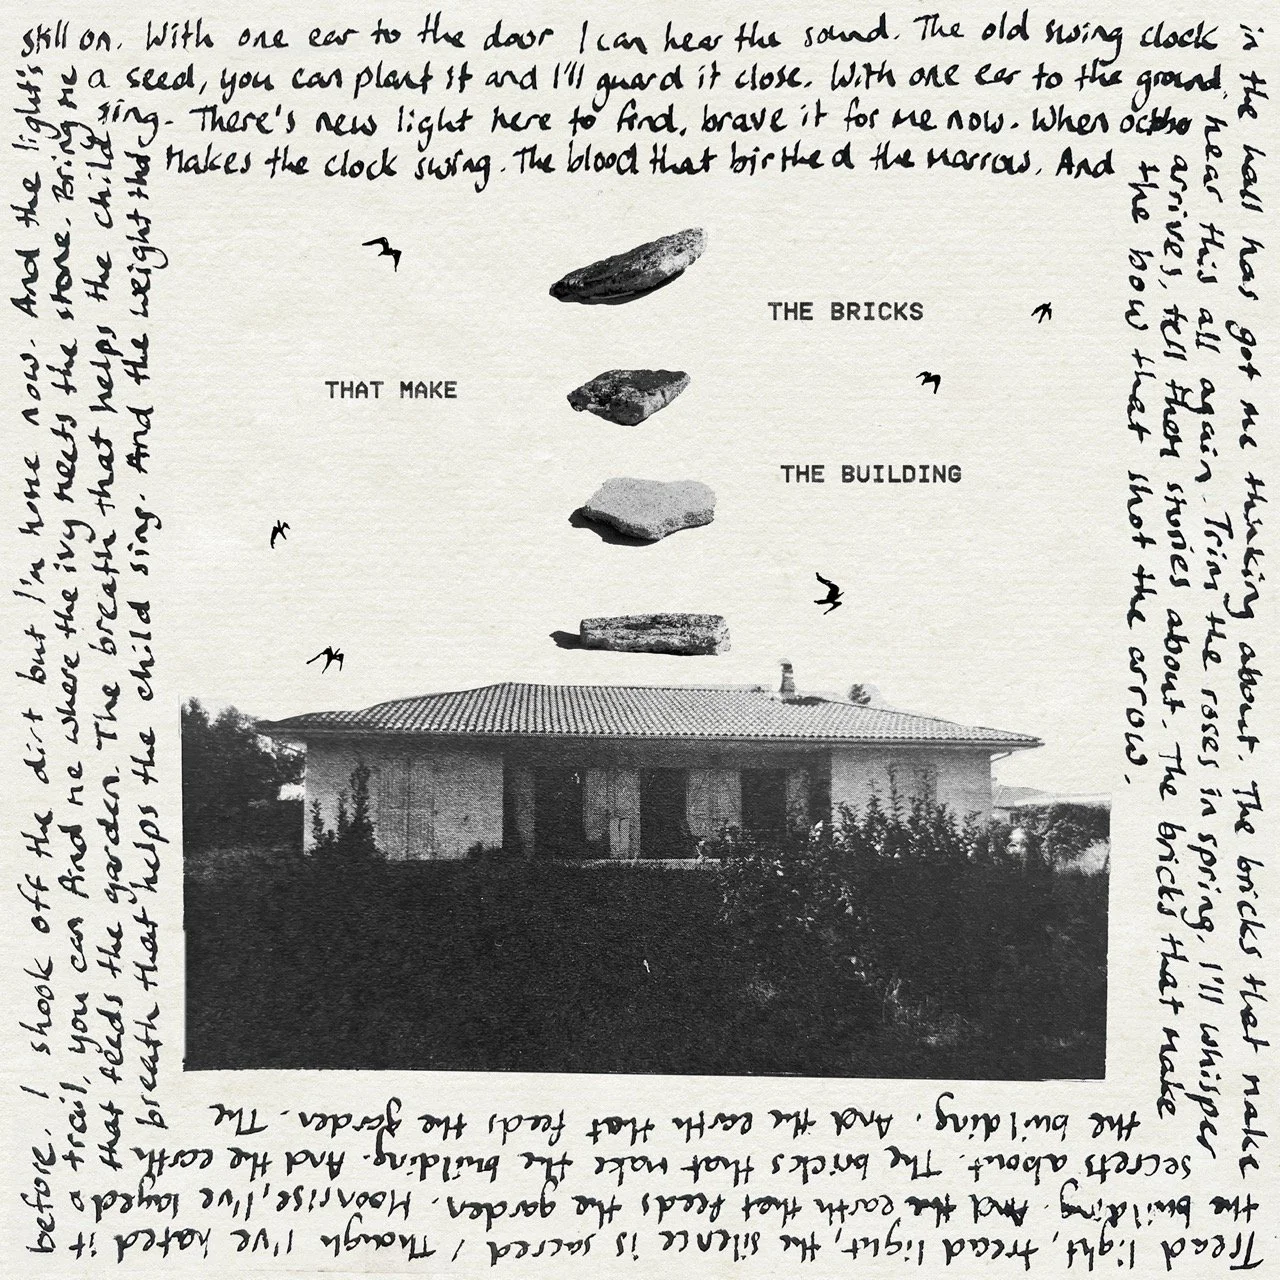 still on. With one ear to the door I can hear the sound. The old swing clock
a seed, you can plant it and I'll guard it close. With one ear to the ground,
sing. There's new light here to find, brave it for me now. When
Makes the clock swing. The blood that birthed the marrow. And
in the hall has got me thinking about. The bricks that make
hear this all again. Trim the roses in spring. I'll whisper
arrives, tell them stories about. The bricks that make
the bow that shot the arrow.
Tread light, tread light, the silence is sacred / Though I've hated it
the building. And the earth that feeds the garden. Moonrise, I've layed a
secrets about. The bricks that make the building. And the earth
the building. And the earth that feeds the garden. The
before. I shook off the dirt but I'm home now. And the light's
trail, you can find me where the ivy meets the stone. Bring me
that feeds the garden. The breath that helps the child
breath that helps the child sing. And the weight that
THE BRICKS
THAT MAKE
THE BUILDING